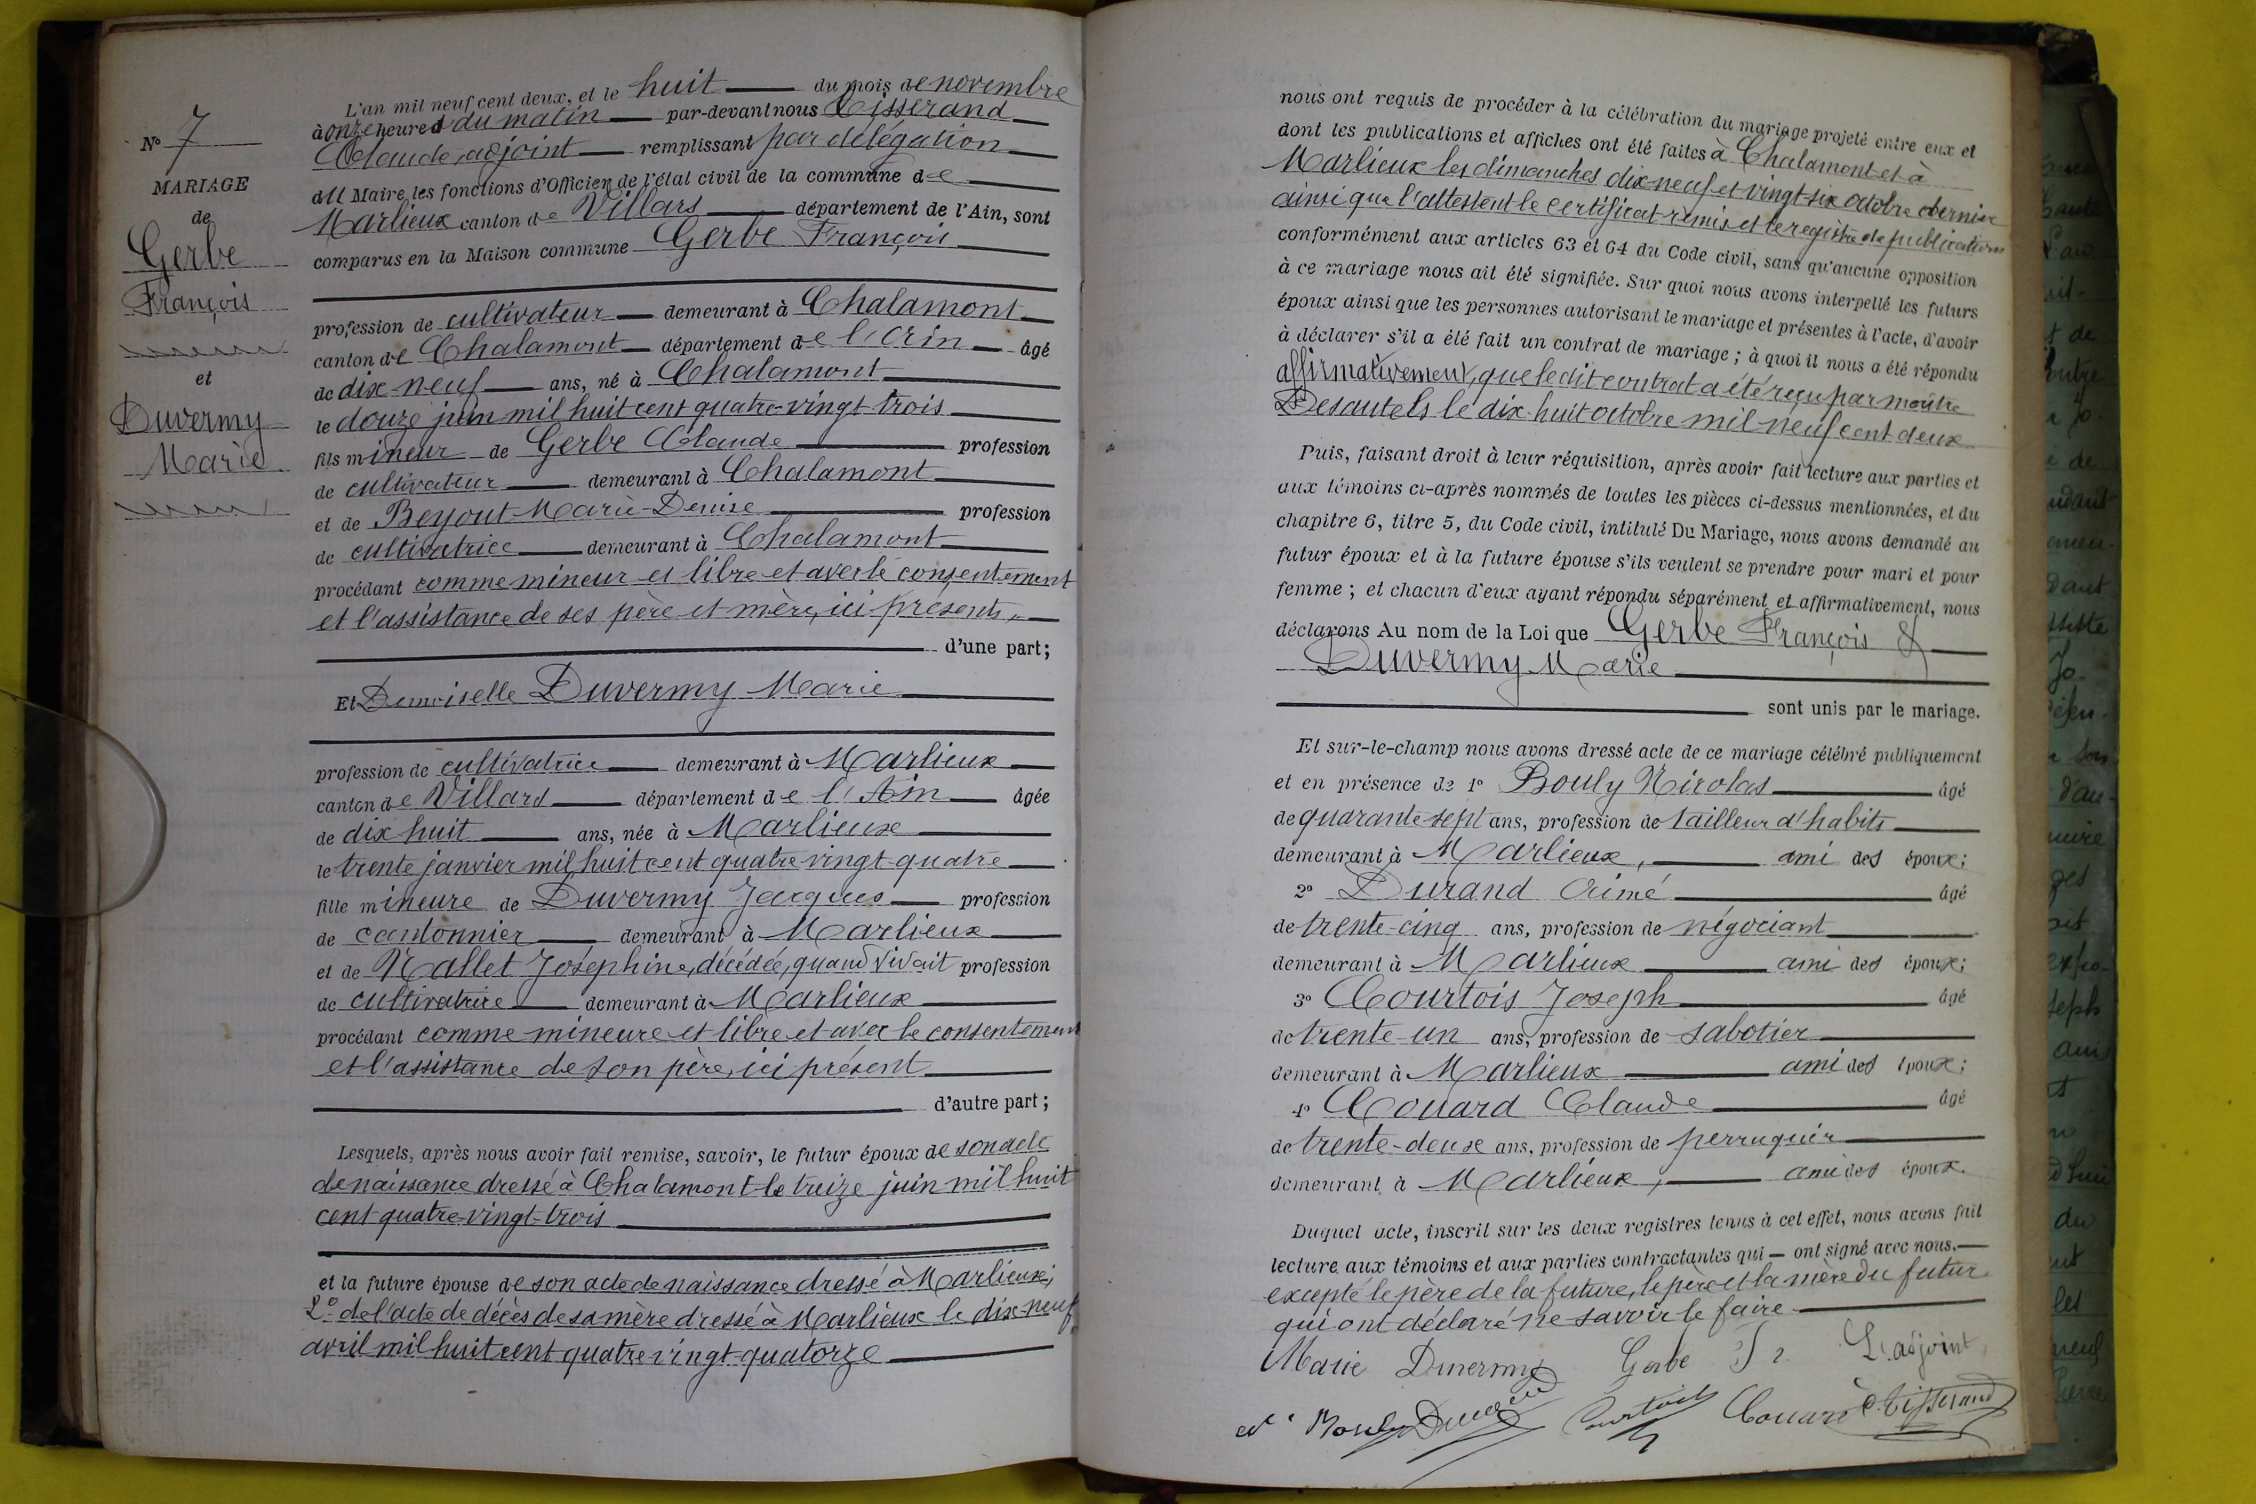 N° 7
MARIAGE
de
Gerbe
François
et
Duvermy
Marie
L'an mil neuf cent deux, et le huit du mois de novembre
à onze heures du matin par-devant nous Tisserand
Claude, adjoint remplissant par délégation
du Maire les fonctions d'Officier de l'état civil de la commune de
Marlieux canton de Villars département de l'Ain, sont
comparus en la Maison commune Gerbe François
profession de cultivateur demeurant à Chalamont
canton de Chalamont département de l'Ain âgé
de dix-neuf ans, né à Chalamont
le douze juin mil huit cent quatre-vingt-trois
fils mineur de Gerbe Claude profession
de cultivateur demeurant à Chalamont
et de Beyout Marie-Denise profession
de cultivatrice demeurant à Chalamont
procédant comme mineur et libre et avec le consentement
et l'assistance de ses père et mère, ici présents,
d'une part;
Et Demoiselle Duvermy Marie
profession de cultivatrice demeurant à Marlieux
canton de Villars département de l'Ain âgée
de dix huit ans, née à Marlieux
le trente janvier mil huit cent quatre vingt-quatre
fille mineure de Duvermy Jacques profession
de cantonnier demeurant à Marlieux
et de Mallet Joséphine, décédée, quand vivait profession
de cultivatrice demeurant à Marlieux
procédant comme mineure et libre et avec le consentement
et l'assistance de son père, ici présent
d'autre part;
Lesquels, après nous avoir fait remise, savoir, le futur époux de son acte
de naissance dressé à Chalamont le treize juin mil huit
cent quatre-vingt-trois
et la future épouse de son acte de naissance dressé à Marlieux;
2° de l'acte de décès de sa mère dressé à Marlieux le dix-neuf
avril mil huit cent quatre vingt-quatorze
nous ont requis de procéder à la célébration du mariage projeté entre eux et
dont les publications et affiches ont été faites à Chalamont et à
Marlieux les dimanches dix-neuf et vingt-six octobre dernier
ainsi que l'attestent le certificat remis et le registre de publications
conformément aux articles 63 et 64 du Code civil, sans qu'aucune opposition
à ce mariage nous ait été signifiée. Sur quoi nous avons interpellé les futurs
époux ainsi que les personnes autorisant le mariage et présentes à l'acte, d'avoir
à déclarer s'il a été fait un contrat de mariage; à quoi il nous a été répondu
affirmativement, que ledit contrat a été reçu par maître
Desautels le dix-huit octobre mil neuf cent deux
Puis, faisant droit à leur réquisition, après avoir fait lecture aux parties et
aux témoins ci-après nommés de toutes les pièces ci-dessus mentionnées, et du
chapitre 6, titre 5, du Code civil, intitulé Du Mariage, nous avons demandé au
futur époux et à la future épouse s'ils veulent se prendre pour mari et pour
femme; et chacun d'eux ayant répondu séparément et affirmativement, nous
déclarons Au nom de la Loi que Gerbe François &
Duvermy Marie
sont unis par le mariage.
Et sur-le-champ nous avons dressé acte de ce mariage célébré publiquement
et en présence de 1° Bouly Nicolas âgé
de quarante-sept ans, profession de tailleur d'habits
demeurant à Marlieux, ami des époux;
2° Durand Aimé âgé
de trente-cinq ans, profession de négociant
demeurant à Marlieux ami des époux;
3° Courtois Joseph âgé
de trente-un ans, profession de sabotier
demeurant à Marlieux ami des époux;
4° Couard Claude âgé
de trente-deux ans, profession de perruquier
demeurant à Marlieux, ami des époux.
Duquel acte, inscrit sur les deux registres tenus à cet effet, nous avons fait
lecture aux témoins et aux parties contractantes qui ont signé avec nous.
excepté le père de la future, le père et la mère du futur
qui ont déclaré ne savoir le faire
Marie Duvermy Gerbe L'adjoint
Bouly Durand Courtois Couard C. Tisserand